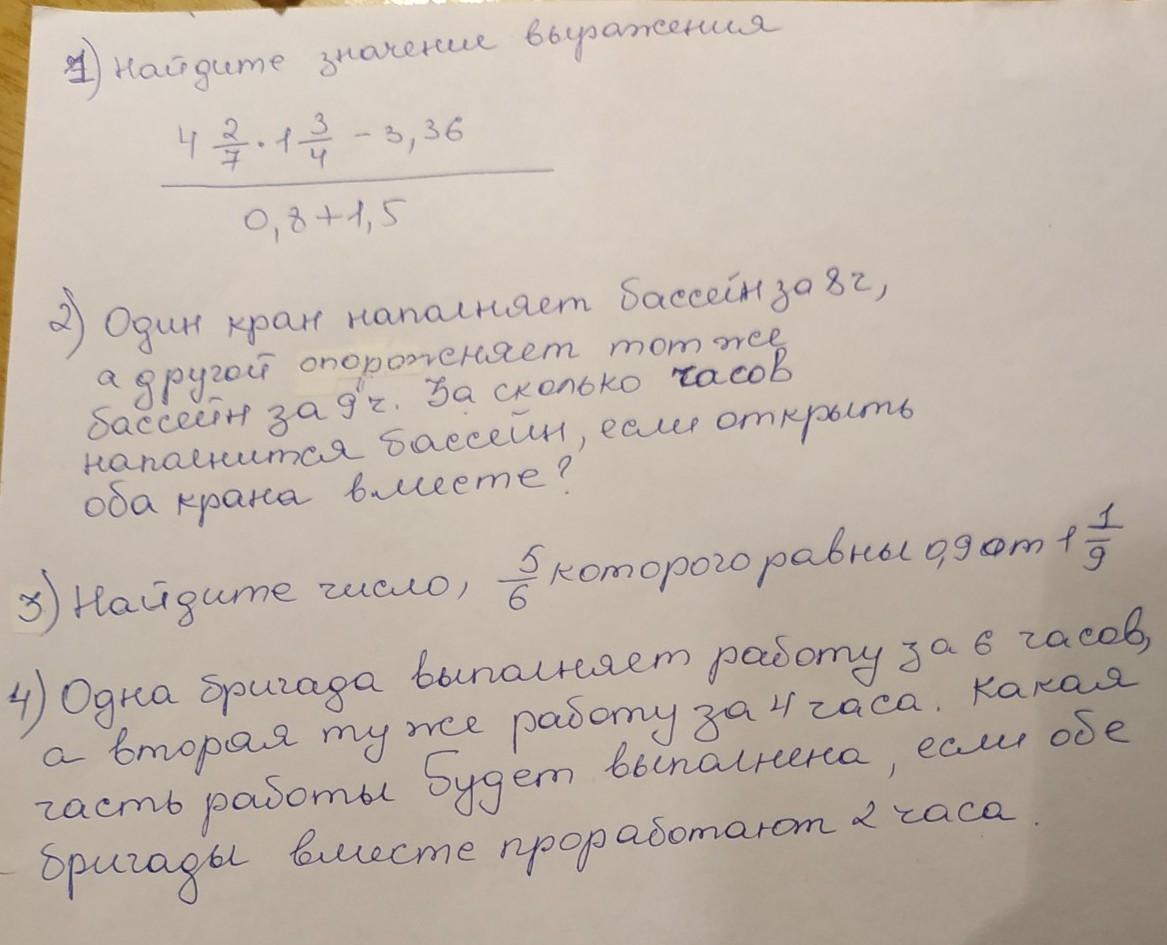 1) Найдите значение выражения
4 2/7 · 1 3/4 - 3,36
0,8+1,5
2) Один кран наполняет бассейн за 8 г,
а другой опорожняет тот же
бассейн за 9 ч. За сколько часов
наполнится бассейн, если открыть
оба крана вместе?
3) Найдите число, 5/6 которого равны 0,9 от 1 1/9
4) Одна бригада выполняет работу за 6 часов,
а вторая ту же работу за 4 часа. Какая
часть работы будет выполнена, если обе
бригады вместе проработают 2 часа.